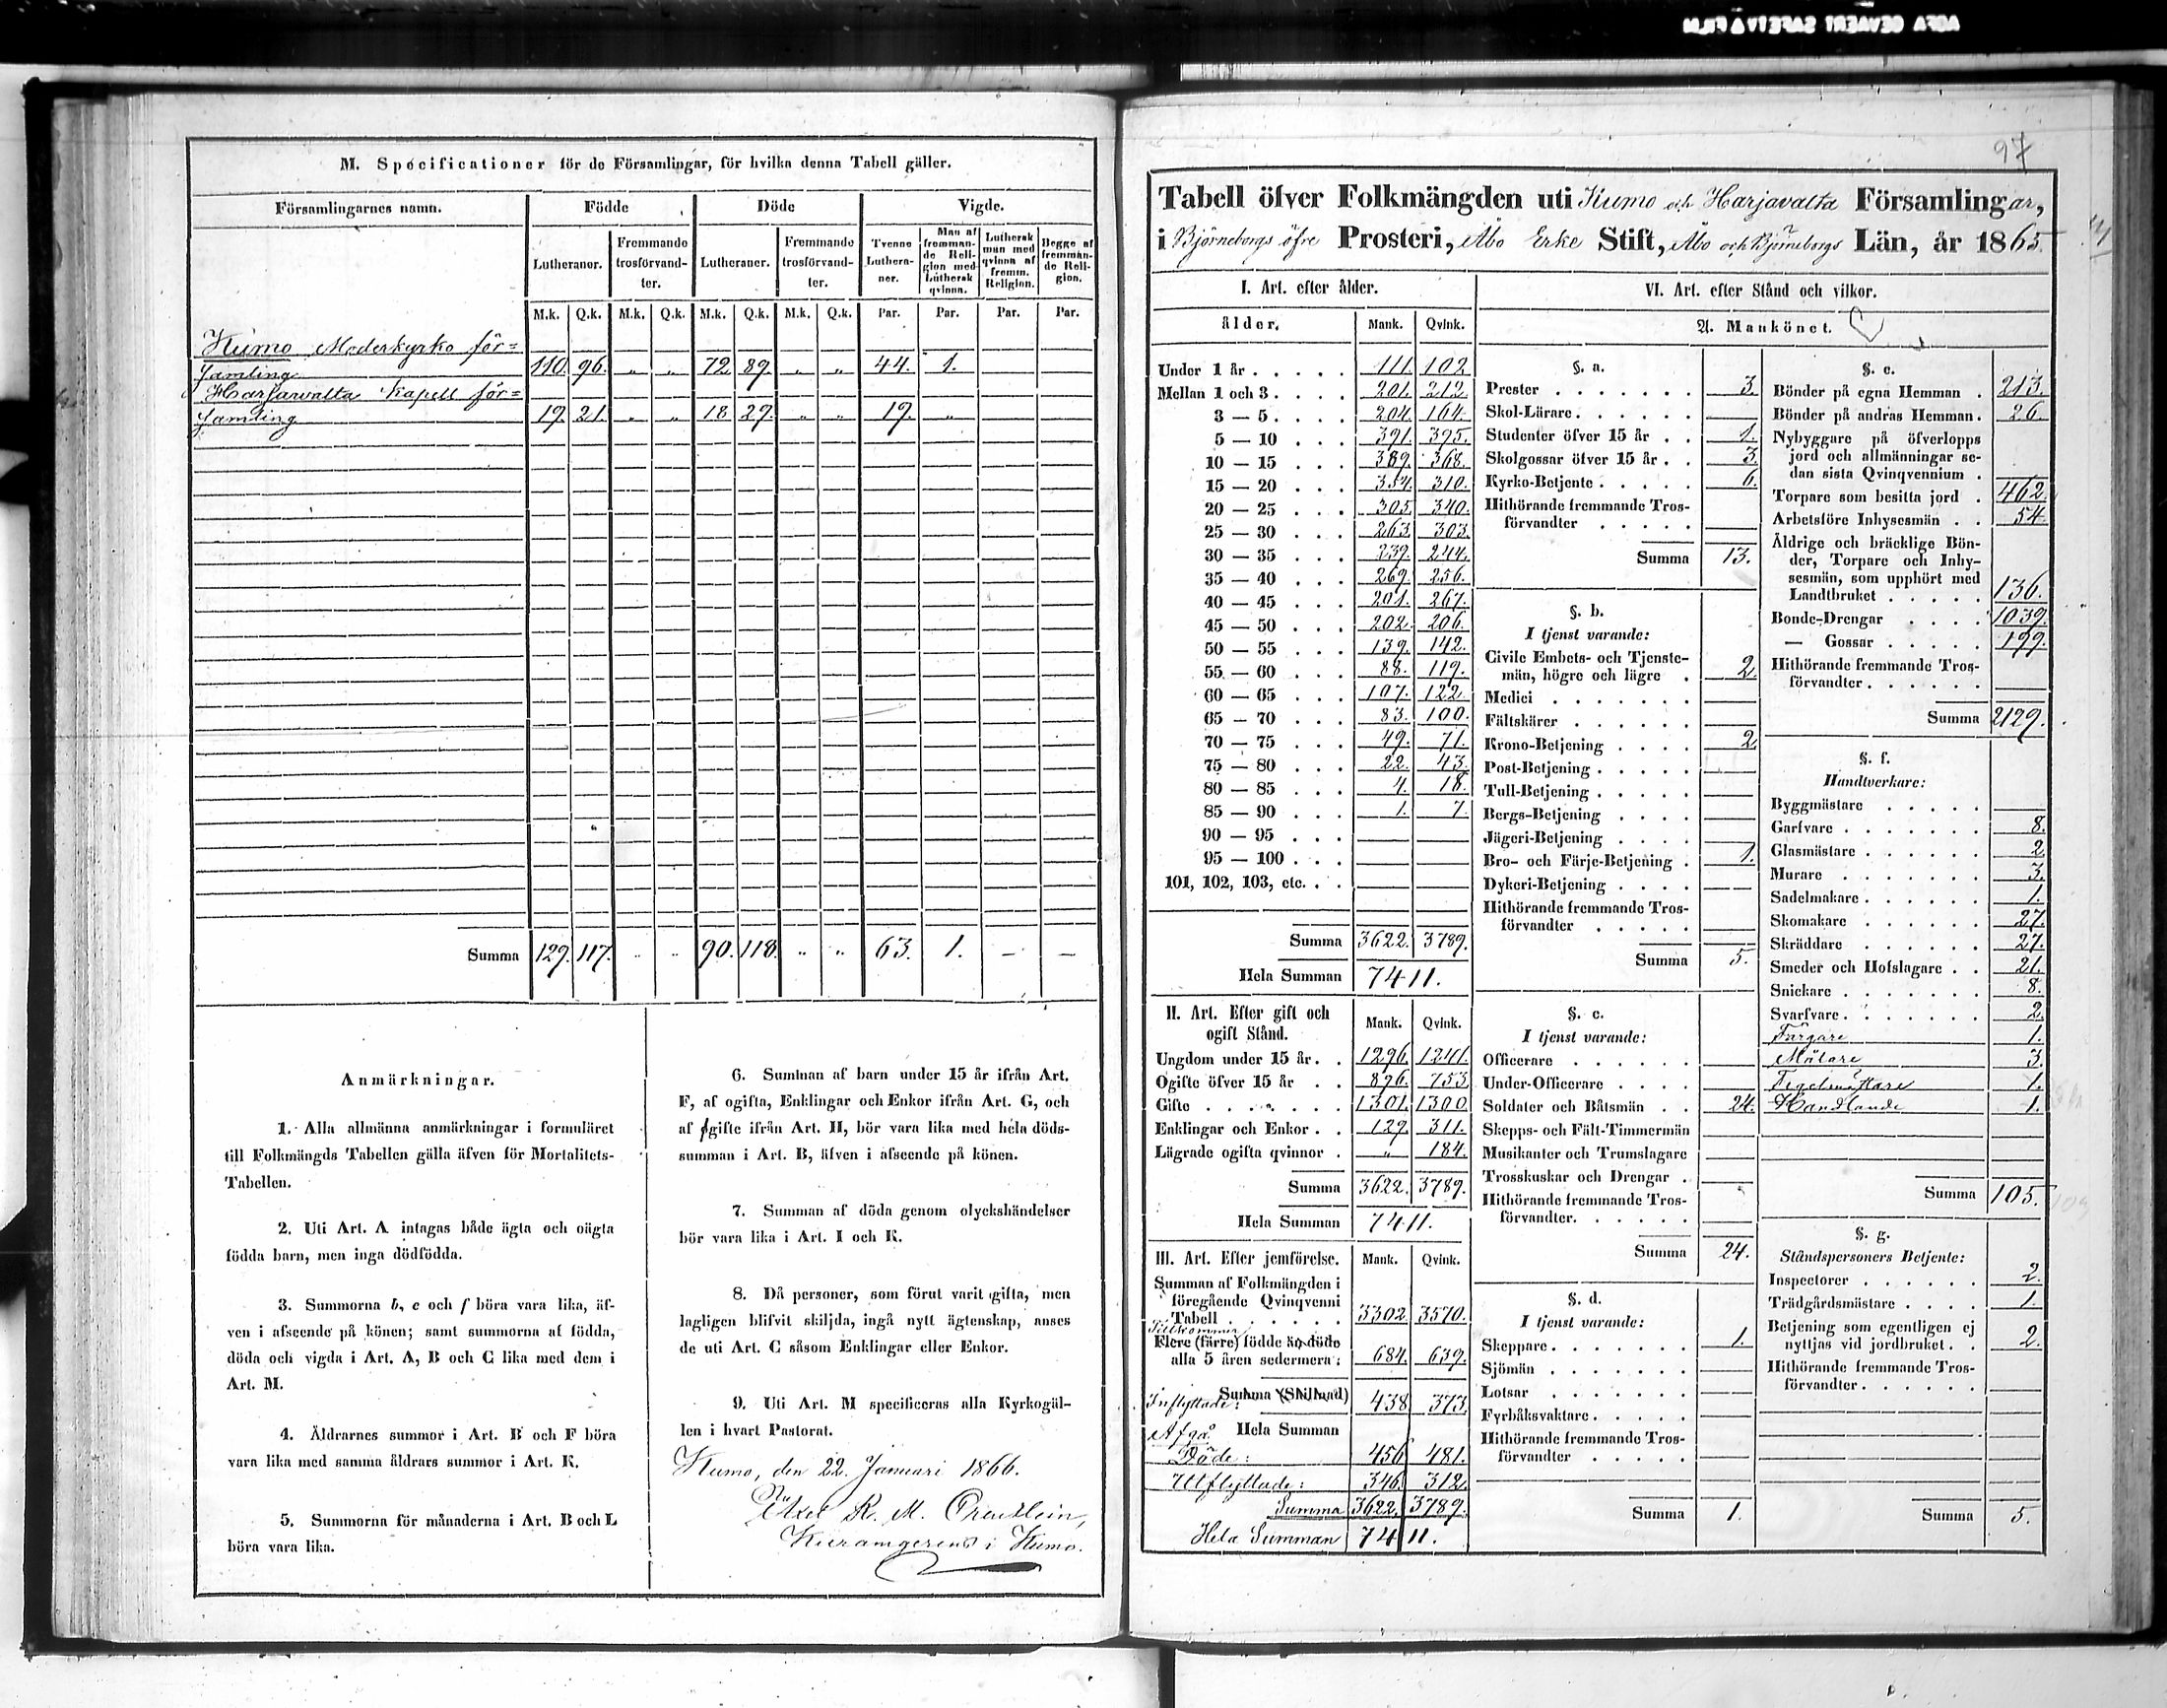 M. Specificationer för de Församlingar, för hvilka denna Tabell gäller.
Församlingarnes namn. Födde Döde Vigde.
Lutheraner. Fremmande trosförvandter. Lutheraner. Fremmande trosförvandter. Tvenne Lutheraner. Man af fremmande Religion med Luthersk qvinna. Luthersk man med qvinna af fremm. Religion. Begge af fremmande Religion.
M.k. Q.k. M.k. Q.k. M.k. Q.k. M.k. Q.k. Par. Par. Par. Par.
Kumo Moderkyrko för=
samling 110. 96. „ „ 72. 89. „ „ 44. 1.
Harjawalta Kapell för=
samling 19. 21. „ „ 18. 29. „ „ 19. „
Summa 129. 117. „ „ 90. 118. „ „ 63. 1. — —
Anmärkningar.
1. Alla allmänna anmärkningar i formuläret
till Folkmängds Tabellen gälla äfven för Mortalitets-
Tabellen.
2. Uti Art. A intagas både ägta och oägta
födda barn, men inga dödfödda.
3. Summorna b, c och f böra vara lika, äf-
ven i afseende på könen; samt summorna af födda,
döda och vigda i Art. A, B och C lika med dem i
Art. M.
4. Åldrarnes summor i Art. B och F böra
vara lika med samma åldrars summor i Art. K.
5. Summorna för månaderna i Art. B och L
böra vara lika.
6. Summan af barn under 15 år ifrån Art.
F, af ogifta, Enklingar och Enkor ifrån Art. G, och
af gifte ifrån Art. H, bör vara lika med hela döds-
summan i Art. B, äfven i afseende på könen.
7. Summan af döda genom olyckshändelser
bör vara lika i Art. I och K.
8. Då personer, som förut varit gifta, men
lagligen blifvit skiljda, ingå nytt ägtenskap, anses
de uti Art. C såsom Enklingar eller Enkor.
9. Uti Art. M specificeras alla Kyrkogäl-
len i hvart Pastorat.
Kumo, den 22. Januari 1866.
Axel R. M.
i Kumo.
97
Tabell öfver Folkmängden uti Kumo och Harjavalta Församlingar,
i Björneborgs öfre Prosteri, Åbo Erke Stift, Åbo och Björneborgs Län, år 1865.
I. Art. efter ålder.
ålder. Mank. Qvink.
Under 1 år 111. 102
Mellan 1 och 3 201. 212.
3 — 5 204. 164.
5 — 10 391. 395.
10 — 15 389. 368.
15 — 20 354. 310.
20 — 25 305. 340.
25 — 30 263. 303.
30 — 35 239. 244.
35 — 40 269. 256.
40 — 45 201. 267.
45 — 50 202. 206.
50 — 55 139. 142.
55 — 60 88. 119.
60 — 65 107. 122.
65 — 70 83. 100.
70 — 75 49. 71.
75 — 80 22. 43.
80 — 85 4. 18.
85 — 90 1. 7.
90 — 95
95 — 100
101, 102, 103, etc.
Summa 3622. 3789.
Hela Summan 7411.
II. Art. Efter gift och
ogift Stånd. Mank. Qvink.
Ungdom under 15 år 1296. 1241.
Ogifte öfver 15 år 896. 753.
Gifte 1301. 1300.
Enklingar och Enkor 129. 311.
Lägrade ogifta qvinnor „ 184.
Summa 3622. 3789.
Hela Summan 7411.
III. Art. Efter jemförelse. Mank. Qvink.
Summan af Folkmängden i
föregående Qvinqvenni
Tabell 3302. 3570.
Tillkommer
Flere (färre) födde än döde
alla 5 åren sedermera: 684. 639.
Summa (Skillnad)
Inflyttade: 438 373.
Afgå Hela Summan
Döde: 456 481.
Utflyttade: 346. 312.
Summa 3622. 3789.
Hela Summan 7411.
VI. Art. efter Stånd och vilkor.
A. Mankönet.
§. a.
Prester 3.
Skol-Lärare
Studenter öfver 15 år 1.
Skolgossar öfver 15 år 3.
Kyrko-Betjente 6.
Hithörande fremmande Tros-
förvandter
Summa 13.
§. b.
I tjenst varande:
Civile Embets- och Tjenste-
män, högre och lägre 2.
Medici
Fältskärer
Krono-Betjening 2.
Post-Betjening
Tull-Betjening
Bergs-Betjening
Jägeri-Betjening
Bro- och Färje-Betjening 1.
Dykeri-Betjening
Hithörande fremmande Tros-
förvandter
Summa 5.
§. c.
I tjenst varande:
Officerare
Under-Officerare
Soldater och Båtsmän 24.
Skepps- och Fält-Timmermän
Musikanter och Trumslagare
Trosskuskar och Drengar
Hithörande fremmande Tros-
förvandter.
Summa 24.
§. d.
I tjenst varande:
Skeppare 1.
Sjömän
Lotsar
Fyrbåksvaktare
Hithörande fremmande Tros-
förvandter
Summa 1.
§. e.
Bönder på egna Hemman 213.
Bönder på andras Hemman 26.
Nybyggare på öfverlopps
jord och allmänningar se-
dan sista Qvinqvennium
Torpare som besitta jord 462.
Arbetsföre Inhysesmän 54.
Åldrige och bräcklige Bön-
der, Torpare och Inhy-
sesmän, som upphört med
Landtbruket 136.
Bonde-Drengar 1039.
— Gossar 199.
Hithörande fremmande Tros-
förvandter
Summa 2129.
§. f.
Handtverkare:
Byggmästare
Garfvare 8.
Glasmästare 2.
Murare 3.
Sadelmakare 1.
Skomakare 27.
Skräddare 27.
Smeder och Hofslagare 21.
Snickare 8.
Svarfvare 2.
Färgare 1.
Målare 3.
Tegelmästare 1.
Handlande 1.
Summa 105.
§. g.
Ståndspersoners Betjente:
Inspectorer 2.
Trädgårdsmästare 1.
Betjening som egentligen ej
nyttjas vid jordbruket 2.
Hithörande fremmande Tros-
förvandter
Summa 5.